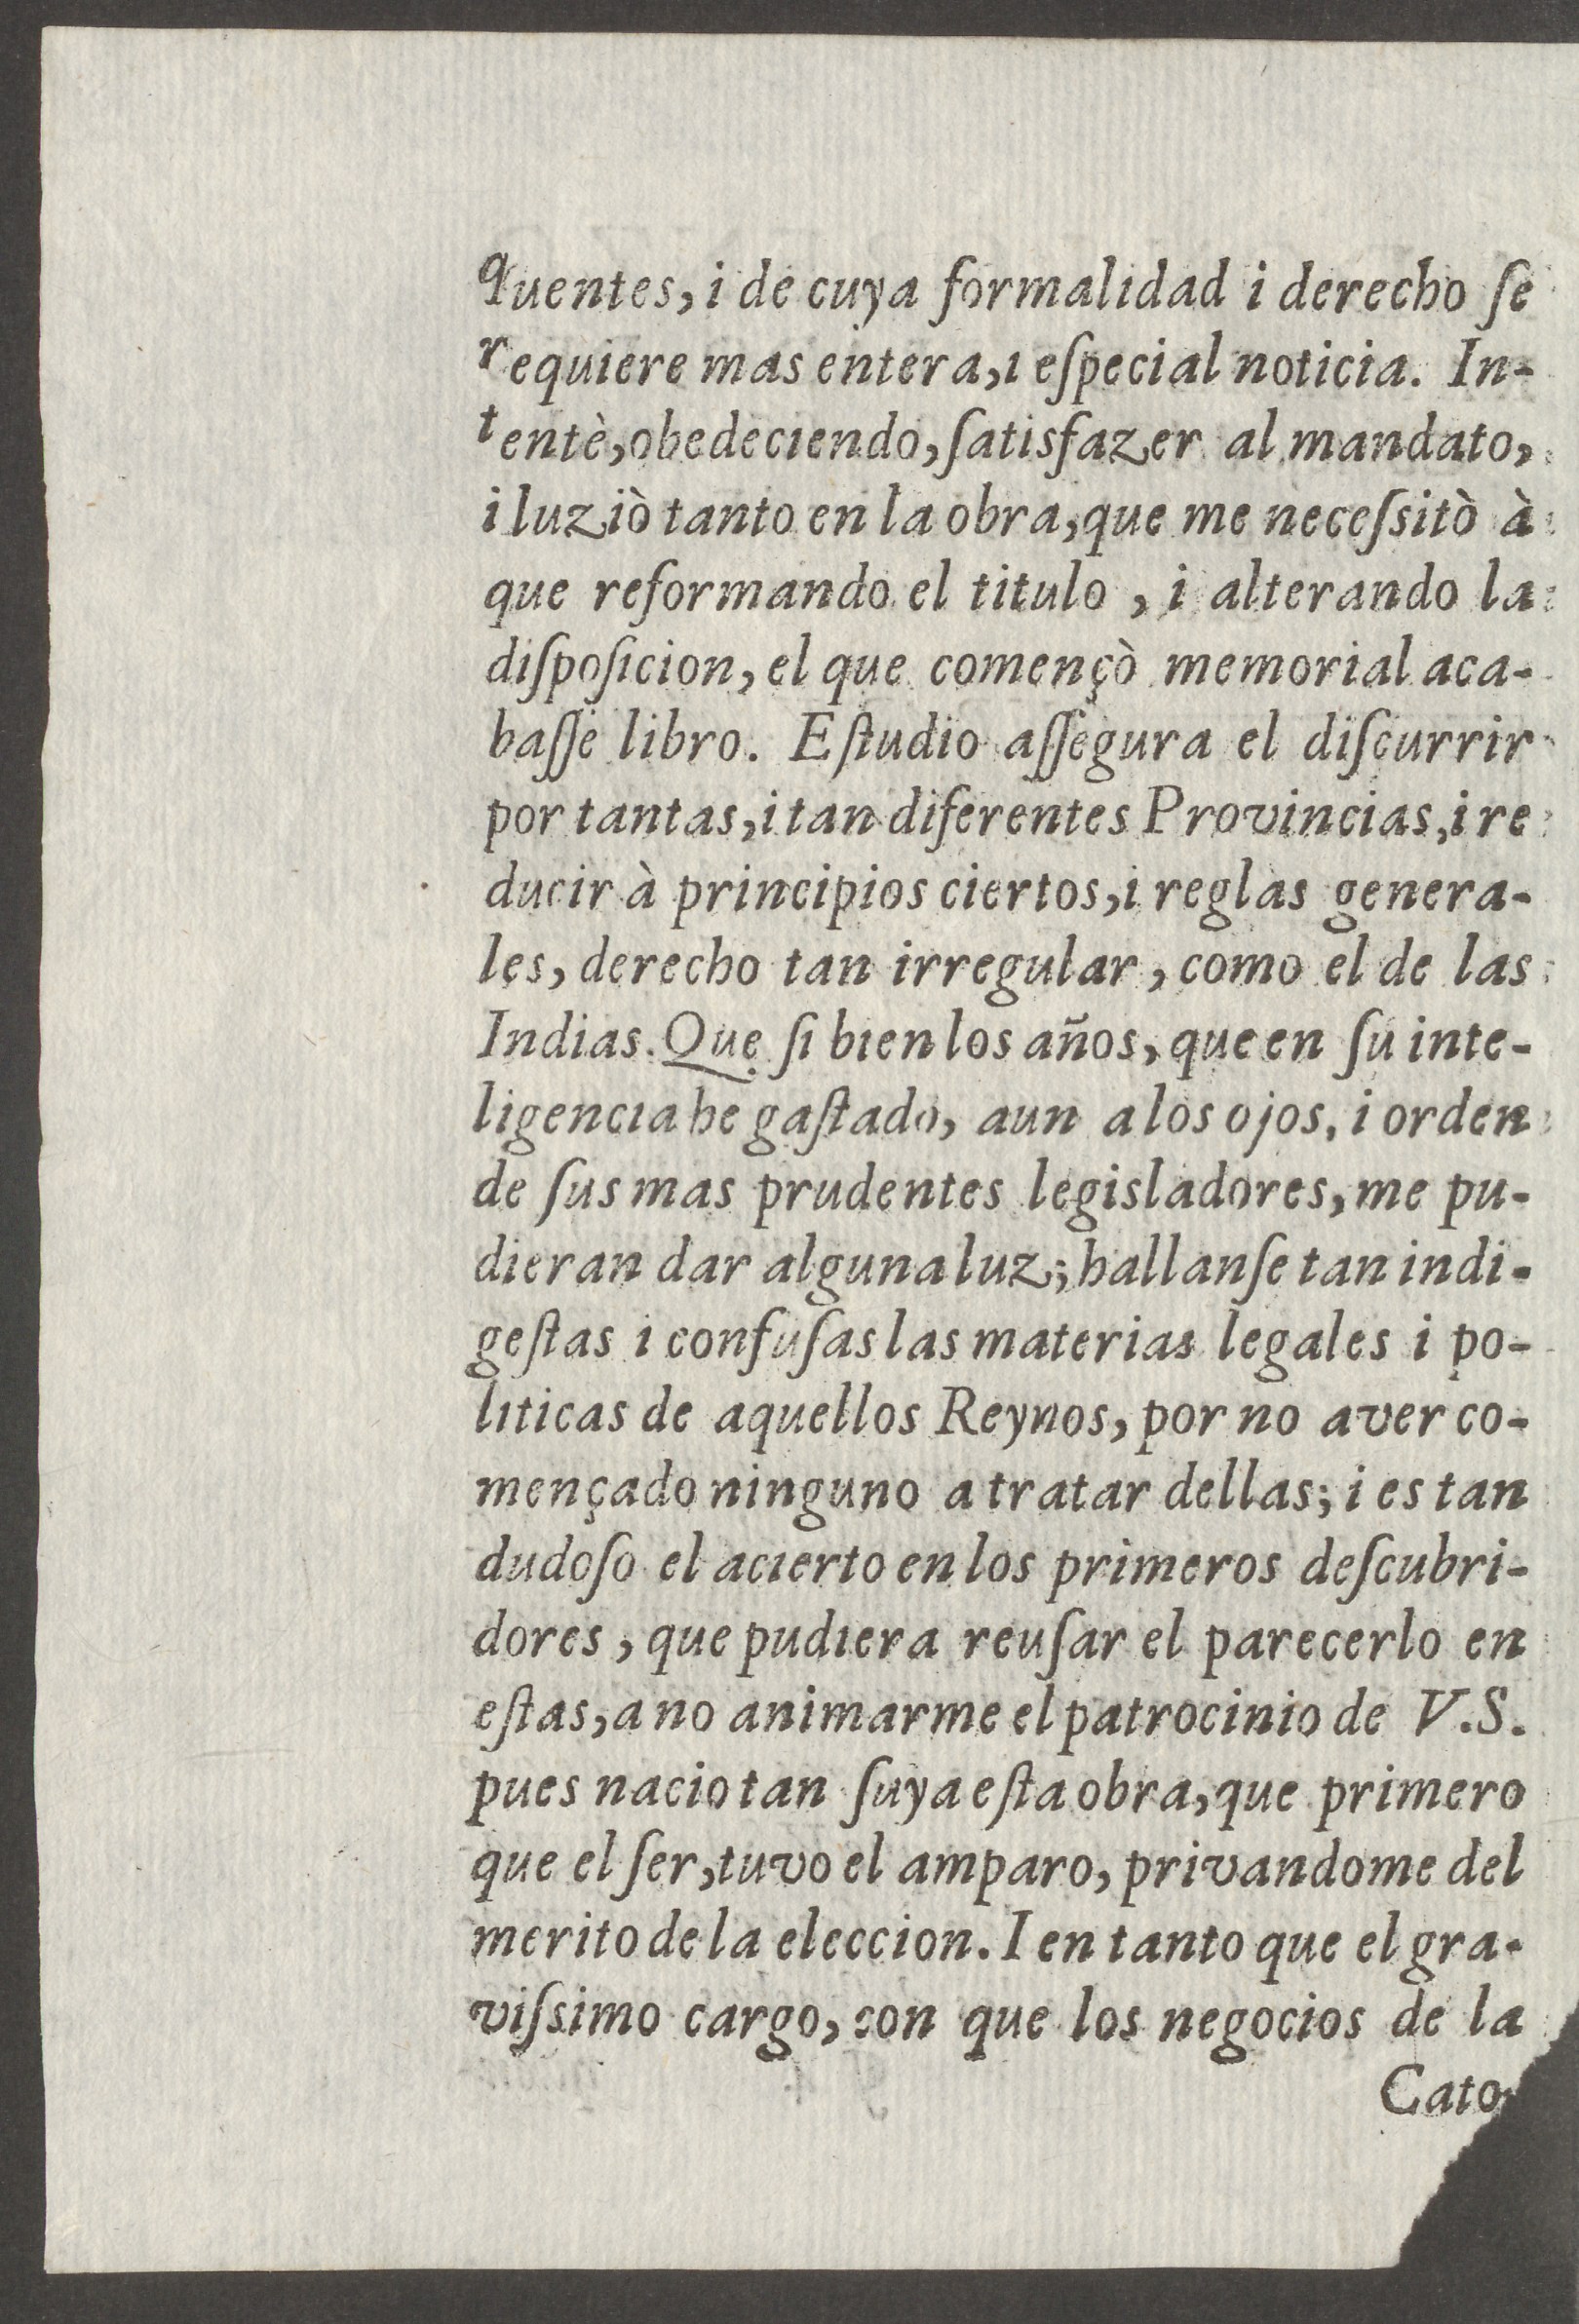 quentes, i de cuya formalidad i derecho ſe
requiere mas entera, i eſpecial noticia. In-
tentè, obedeciendo, ſatisfazer al mandato,
i luziò tanto en la obra, que me neceſsitò à
que reformando el titulo , i alterando la
diſpoſicion, el que començò memorial aca-
baſſe libro. Eſtudio aſſegura el diſcurrir
por tantas, i tan diferentes Provincias, i re
ducir à principios ciertos, i reglas genera-
les, derecho tan irregular , como el de las
Indias. Que ſi bien los años, que en ſu inte-
ligencia he gaſtado, aun a los ojos, i orden
de ſus mas prudentes legisladores, me pu-
dieran dar alguna luz; hallanſe tan indi-
geſtas i confuſas las materias legales i po-
liticas de aquellos Reynos, por no aver co-
mençado ninguno a tratar dellas; i es tan
dudoſo el acierto en los primeros deſcubri-
dores , que pudiera reuſar el parecerlo en
eſtas, a no animarme el patrocinio de V.S.
pues nacio tan ſuya eſta obra, que primero
que el ſer, tuvo el amparo, privandome del
merito de la eleccion. I en tanto que el gra-
viſsimo cargo, con que los negocios de la
Cato-